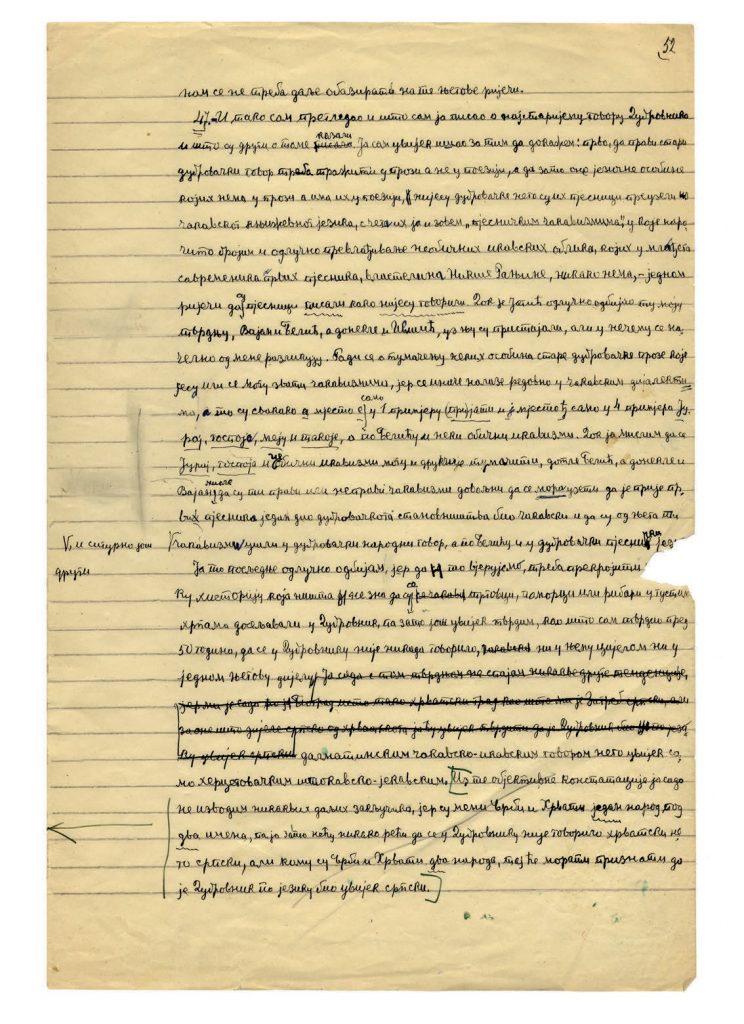 52
нам се не треба даље обазирати на те његове ријечи.
47. И тако сам прегледао и што сам ја писао о најстаријему говору Дубровника
и што су други о томе писали казали. Ја сам увијек ишао за тим да докажем: прво, да прави стари
дубровачки говор треба тражити у прози а не у поезији, а да зато оне језичне особине
којих нема у прози а има их у поезији, нијесу дубровачке него су их пјесници преузели из
чакавског књижевног језика, с чега их ја и зовем „пјесничким чакавизмима“, у које наро-
чито бројим и одлучно превлађивање необичних икавских облика, којих у млађега
савременика првих пјесника, властелина Никше Рањине, никако нема, – једном
ријечи да су пјесници писали како нијесу говорили. Док је Јагић одлучно одбијао ту моју
тврдњу, Вајан и Белић, а донекле и Ившић, уз њу су пристајали, али у нечему се на-
челно од мене разликују. Ради се о тумачењу неких особина старе дубровачке прозе које
јесу или се могу звати чакавизмима, јер се иначе налазе редовно у чакавским дијалекти-
ма, а то су свакако а мјесто е само у 1 примјеру (пријати и ј мјесто ђ само у 4 примјера Ју-
рај, госпоја, меју и такоје, а по Белићу и неки обични икавизми. Док ја мислим да се
Јуриј, госпоја и обични икавизми могу и друкчије тумачити, дотле Белић, а донекле и
Вајан, мисле да су ти прави или неправи чакавизми довољни да се мора узети да је прије пр-
вих пјесника један дио дубровачкога становништва био чакавски и да су од њега ти
V, и сигурно још
други
V чакавизми ушли у дубровачки народни говор, а по Белићу и у дубровачки пјеснички јез-
Ја то посљедње одлучно одбијам, јер да то вјерујемо, треба прекројити
ку хисторију која ништа не зна да су се чакавци трговци, поморци или рибари у густим
хрпама досељавали у Дубровник, па зато још увијек тврдим, као што сам тврдио пред
50 година, да се у Дубровнику није никада говорило, ни у њему цијелом ни у
једном његову дијелу, Ја сада с том тврдњом не спајам никакве друге тенденције,
јер ми је сада Београд исто тако хрватски град као што ми је Загреб српски, али
за оне што дијеле српско од хрватскога ја ћу увијек тврдити да је Дубровник био по јези-
ку увијек српски далматинским чакавско-икавским говором него увијек са-
мо херцеговачким штокавско-јекавским. [Из те објективне констатације ја сада
не изводим никаквих даљих закључака, јер су мени Срби и Хрвати један народ под
два имена, па ја зато нећу никако рећи да се у Дубровнику није говорило хрватски не-
го српски, али кому су Срби и Хрвати два народа, тај ће морати признати да
је Дубровник по језику био увијек српски.]